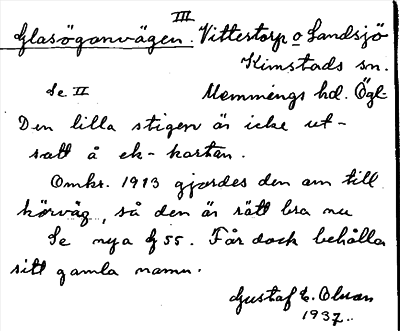 III
Glasögonvägen. Vittestorp o Landsjö
Kimstads sn.
Se II Memmings hd. Ögl.
Den lilla stigen är icke ut-
satt å ek-kartan.
Omkr. 1913 gjordes den om till
körväg, så den är rätt bra nu
Se nya f 55. Får dock behålla
sitt gamla namn.
Gustaf E. Olsson
1937.